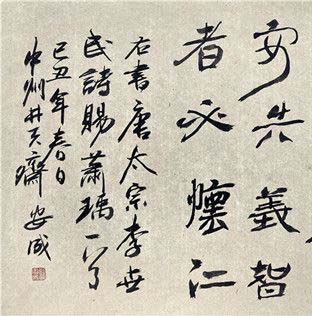 安義智
者必懷仁
右書唐太宗李世
民詩賜蕭瑀一首
己丑年春日
中州井天齋 安成